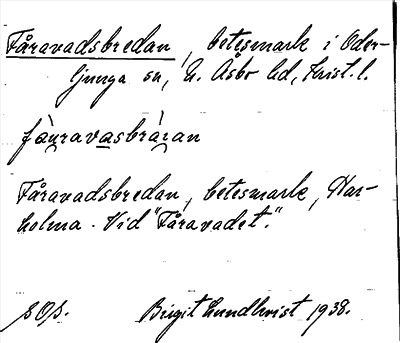 Fåravadsbredan, betesmark i Oder-
ljunga sn, N. Åsbo hd, Krist. l.
fåuravasbráran
Fåravadsbredan, betesmark, Har-
holma. Vid "Fåravadet."
Birgit Lundkvist 1938.